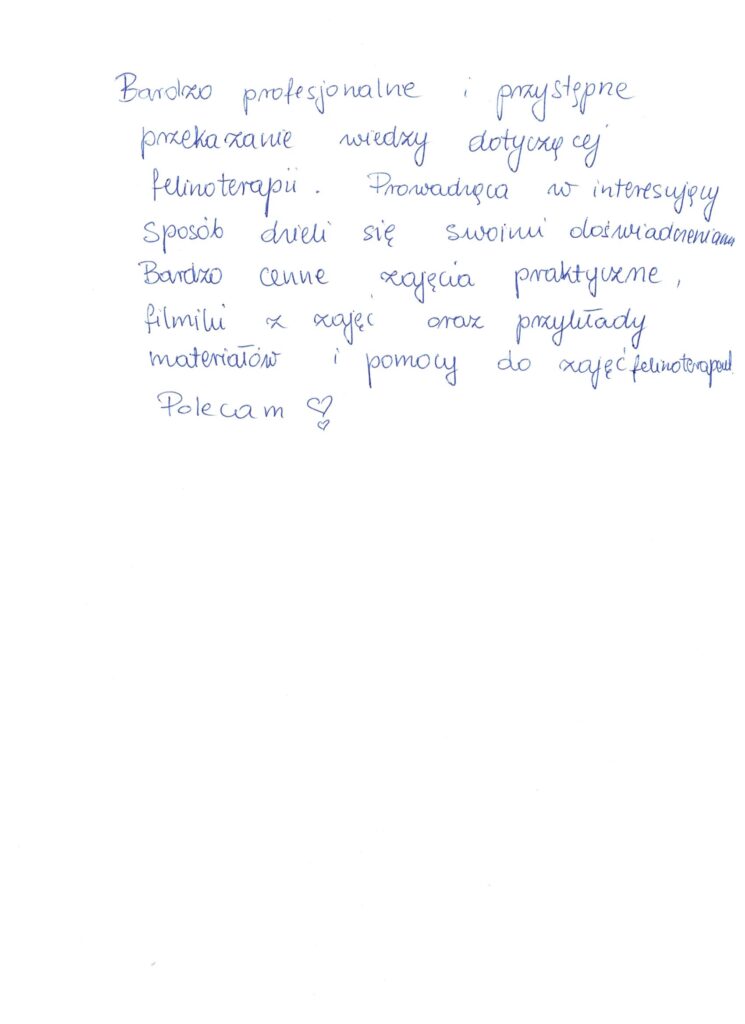 Bardzo profesjonalne i przystępne
przekazanie wiedzy dotyczącej
felinoterapii. Prowadząca w interesujący
sposób dzieli się swoimi doświadczeniami
Bardzo cenne zajęcia praktyczne,
filmiki z zajęć oraz przykłady
materiałów i pomocy do zajęć
Polecam